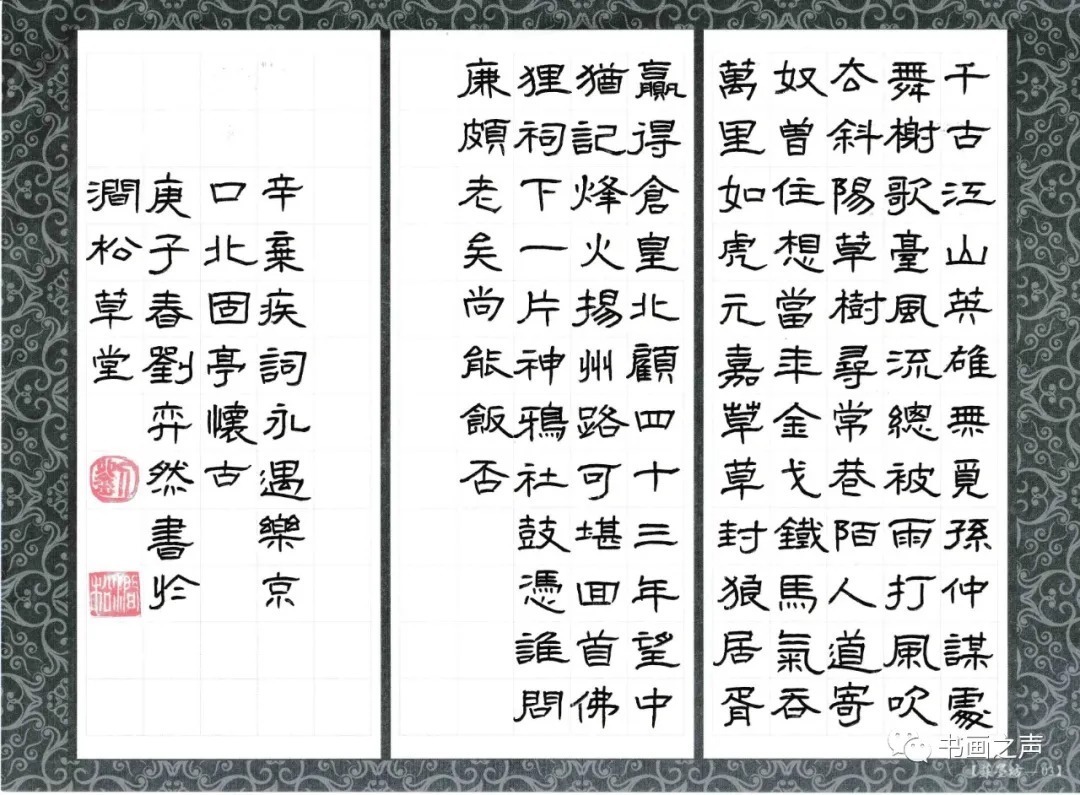 千古江山英雄無覓孫仲謀處
舞榭歌臺風流總被雨打風吹
去斜陽草樹尋常巷陌人道寄
奴曾住想當年金戈鐵馬氣吞
萬里如虎元嘉草草封狼居胥
贏得倉皇北顧四十三年望中
猶記烽火揚州路可堪回首佛
狸祠下一片神鴉社鼓憑誰問
廉頗老矣尚能飯否
辛棄疾詞永遇樂京
口北固亭懷古
庚子春劉弈然書於
澗松草堂
劉
澗松
书画之声